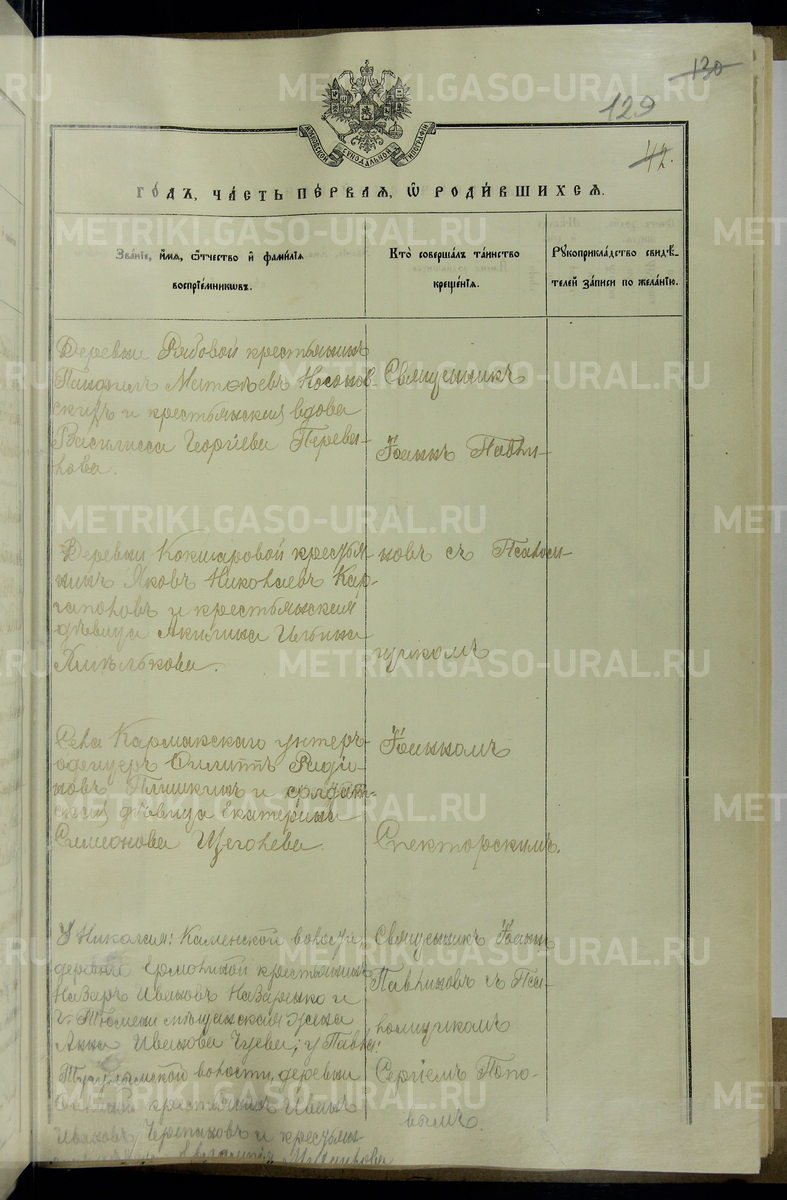 130
129
42.
МОСКОВСКОЙ СѴНОДАЛЬНОЙ ТИПОГРАФІИ
ГО́ДЪ, ЧА́СТЬ ПЕ́РВАЯ, Ѡ҆ РОДИ́ВШИХСЯ.
Зва́нїе, и҆́мѧ, ѻ҆́тчество и҆ фами́лїѧ
воспрїе́мникѡвъ.
Кто̀ соверша́лъ та́инство
креще́нїѧ.
Рꙋкоприкла́дство свидѣ́-
телей за́писи по жела́нїю.
Деревни Рябовой крестьянинъ
Матѳѣевъ
скихъ и крестьянская вдова
Василисса Георгіева Переви-
лова.
Священникъ
Іоаннъ Павли-
Деревни Кокшаровой крестья-
нинъ Яковъ Николаевъ Кар-
гаполовъ и крестьянская
дѣвица Акилина Ильина
новъ съ Псалом-
щикомъ
Села Кармакскаго унтеръ-
офицеръ Филиппъ Родіо-
новъ Плишкинъ и солдат-
ская дѣвица Екатерина
Симеонова Щеголева.
Іоанномъ
Спекторскимъ.
У Николая: Каменской волости,
деревни Ермолиной крестьянинъ
Назаръ Ивановъ Назарько и
г. Тюмени мѣщанская жена
Анна Иванова Гуева; у Павла:
Тугулымской волости, деревни
крестьянинъ Иванъ
Ивановъ Черепановъ и крестьян-
Священникъ Іоаннъ
Павлиновъ съ Пса-
ломщикомъ
Сергіемъ Попо-
вымъ.
METRIKI.GASO-URAL.RU